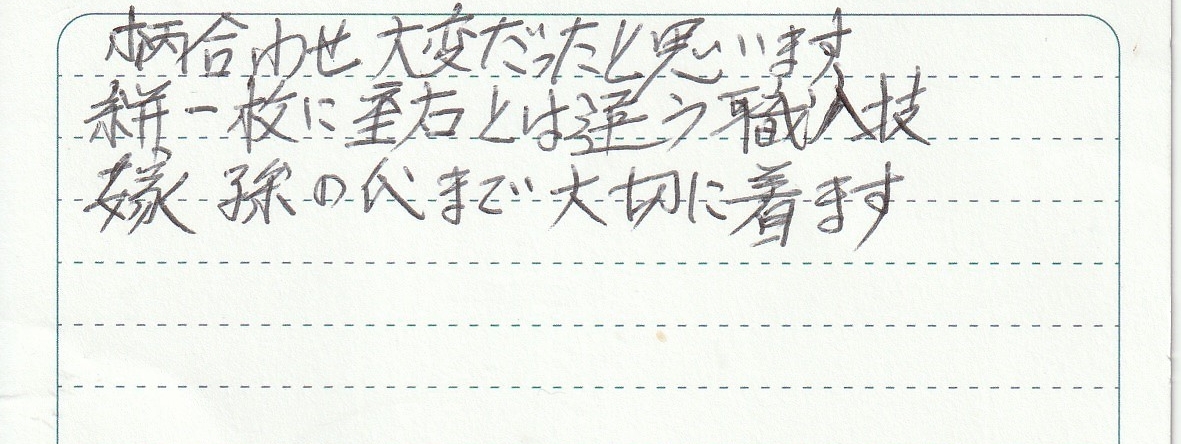 柄合わせ大変だったと思います
絣一枚に重右とは違う職人技
嫁 孫の代まで大切に着ます